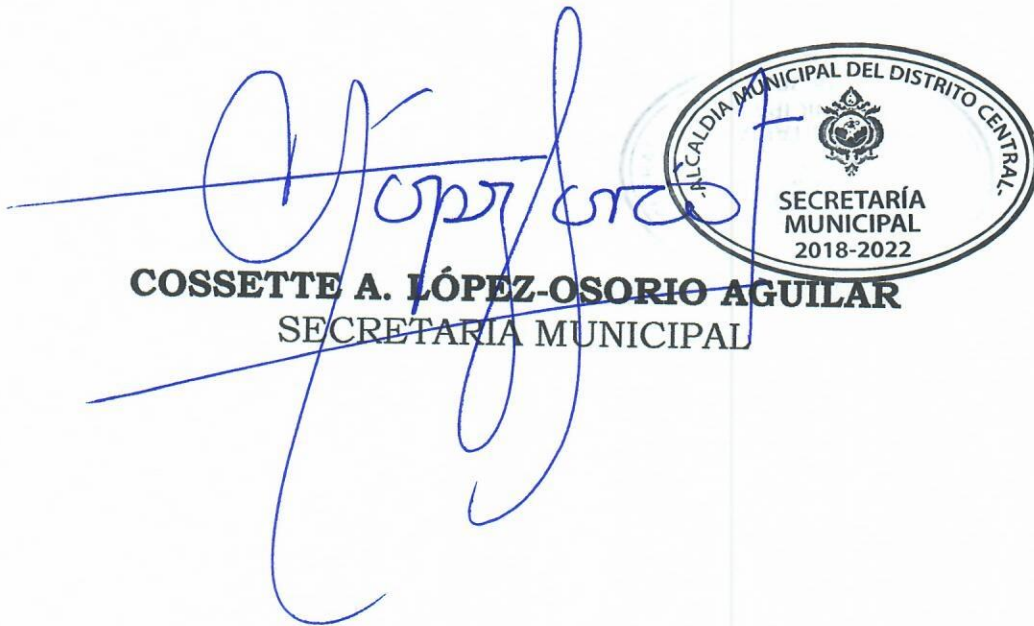 -ALCALDIA MUNICIPAL DEL DISTRITO CENTRAL-
SECRETARÍA
MUNICIPAL
2018-2022
COSSETTE A. LÓPEZ-OSORIO AGUILAR
SECRETARIA MUNICIPAL